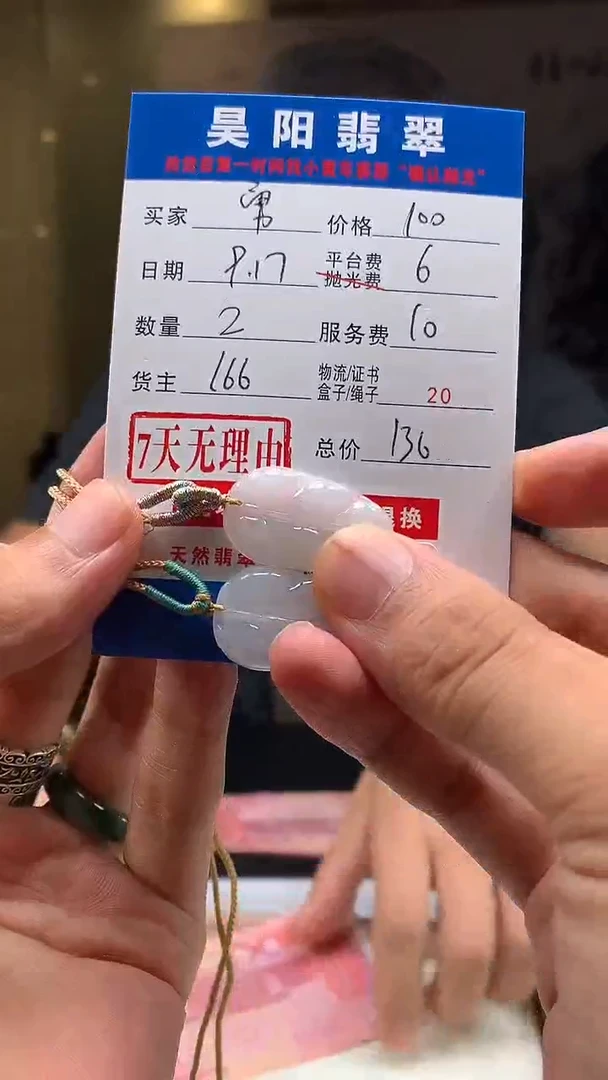 昊阳翡翠
买家 价格 100
日期 9.17 平台费 抛光费 6
数量 2 服务费 10
货主 166 物流/证书 盒子/绳子 20
7天无理由 总价 136
换
天然翡翠